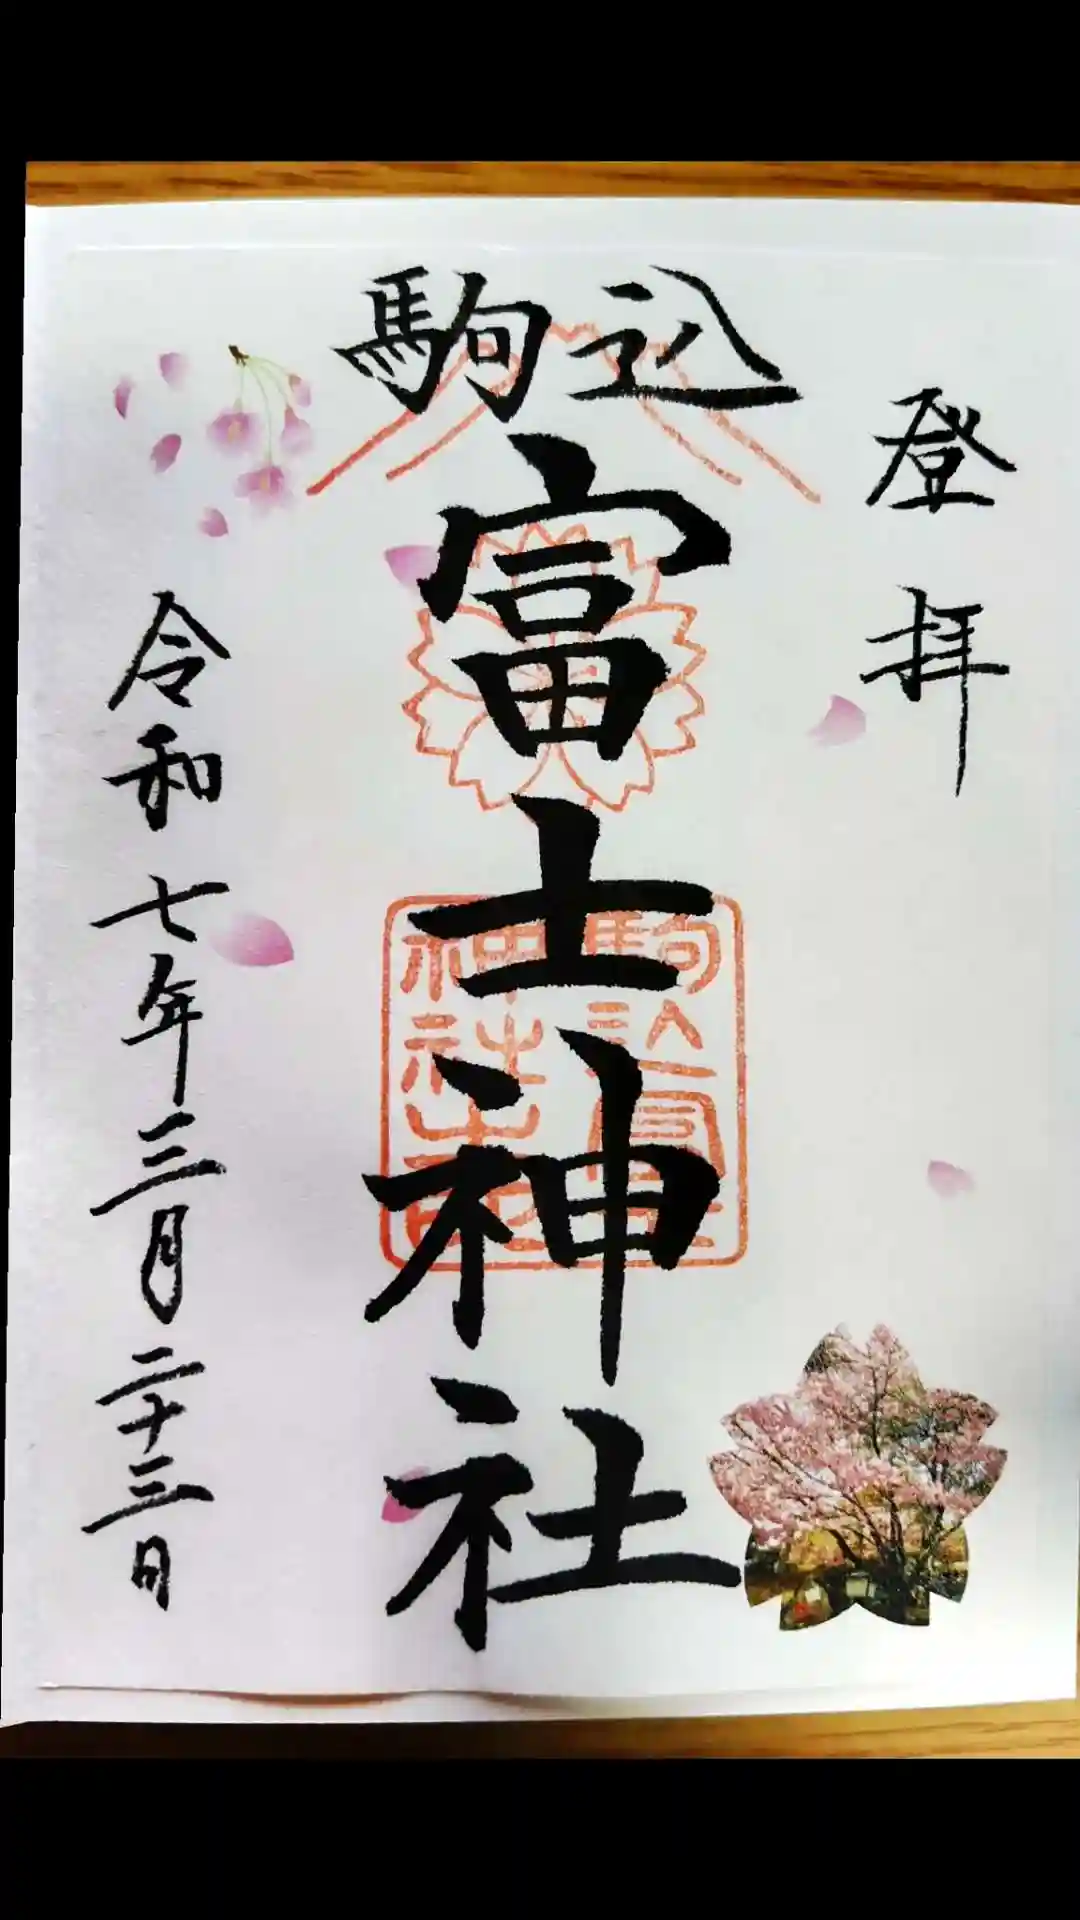 登拝
駒込
富士神社
令和七年三月二十三日
駒込富士
神社之印